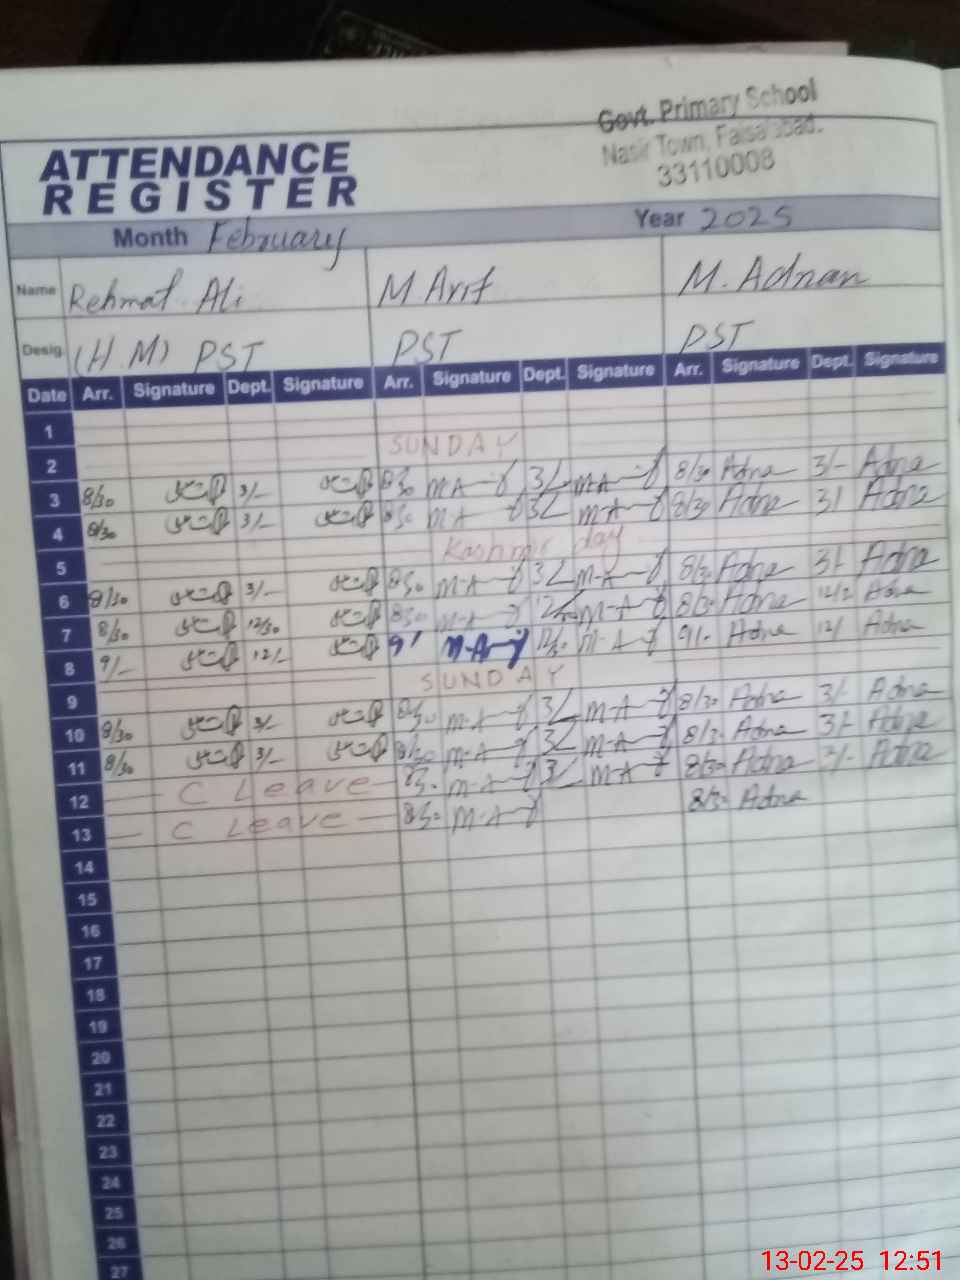 Govt. Primary School
Nasir Town, Faisalabad.
33110008
ATTENDANCE
REGISTER
Month February Year 2025
Name Rehmat Ali M. Arif M. Adnan
Desig. (H.M) PST PST PST
Date Arr. Signature Dept. Signature Arr. Signature Dept. Signature Arr. Signature Dept. Signature
1
SUNDAY
2
3 8/30 3/- 8/30 M-A 3/ M-A 8/30 Adna 3/- Adna
4 8/30 3/- 8/30 M-A 3/ M-A 8/30 Adna 3/ Adna
Kashmir day
5
6 8/30 3/- 8/30 M-A 3/ M-A 8/3 Adna 3/- Adna
7 8/30 12/30 8/30 M-A M-A 8/3 Adna Adna
8 9/- 12/- 9/ M-A M-A 9/- Adna 12/ Adna
SUNDAY
9
10 8/30 3/- 8/30 M-A 3/ M-A 8/30 Adna 3/- Adna
11 8/30 3/- 8/30 M-A 3/ M-A 8/3- Adna 3/- Adna
12 C Leave 83- M-A 3/ M-A 8/3- Adna Adna
13 C Leave 83- M-A 8/3- Adna
14
15
16
17
18
19
20
21
22
23
24
25
26
27
13-02-25 12:51